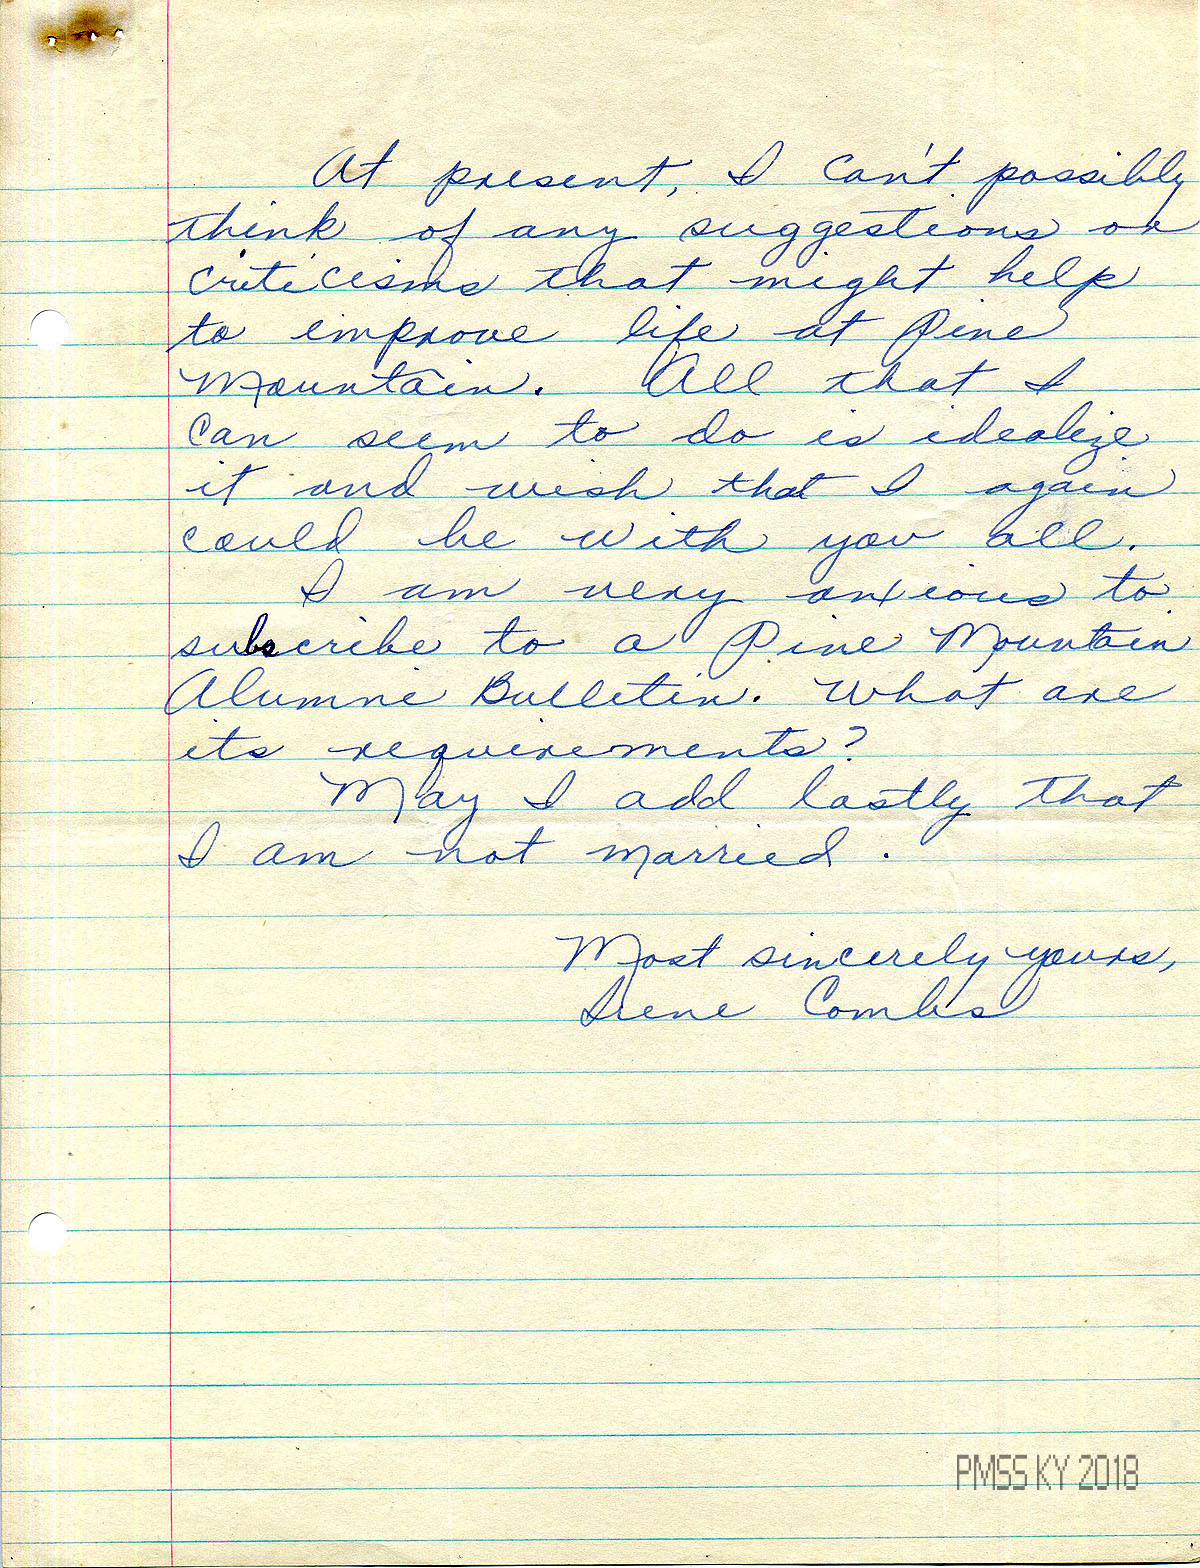 At present, I can't possibly
think of any suggestions or
criticisms that might help
to improve life at Pine
Mountain. All that I
can seem to do is idealize
it and wish that I again
could be with you all.
I am very anxious to
subscribe to a Pine Mountain
Alumni Bulletin. What are
its requirements?
May I add lastly that
I am not married.
Most sincerely yours,
Irene Combs
PMSS KY 2018